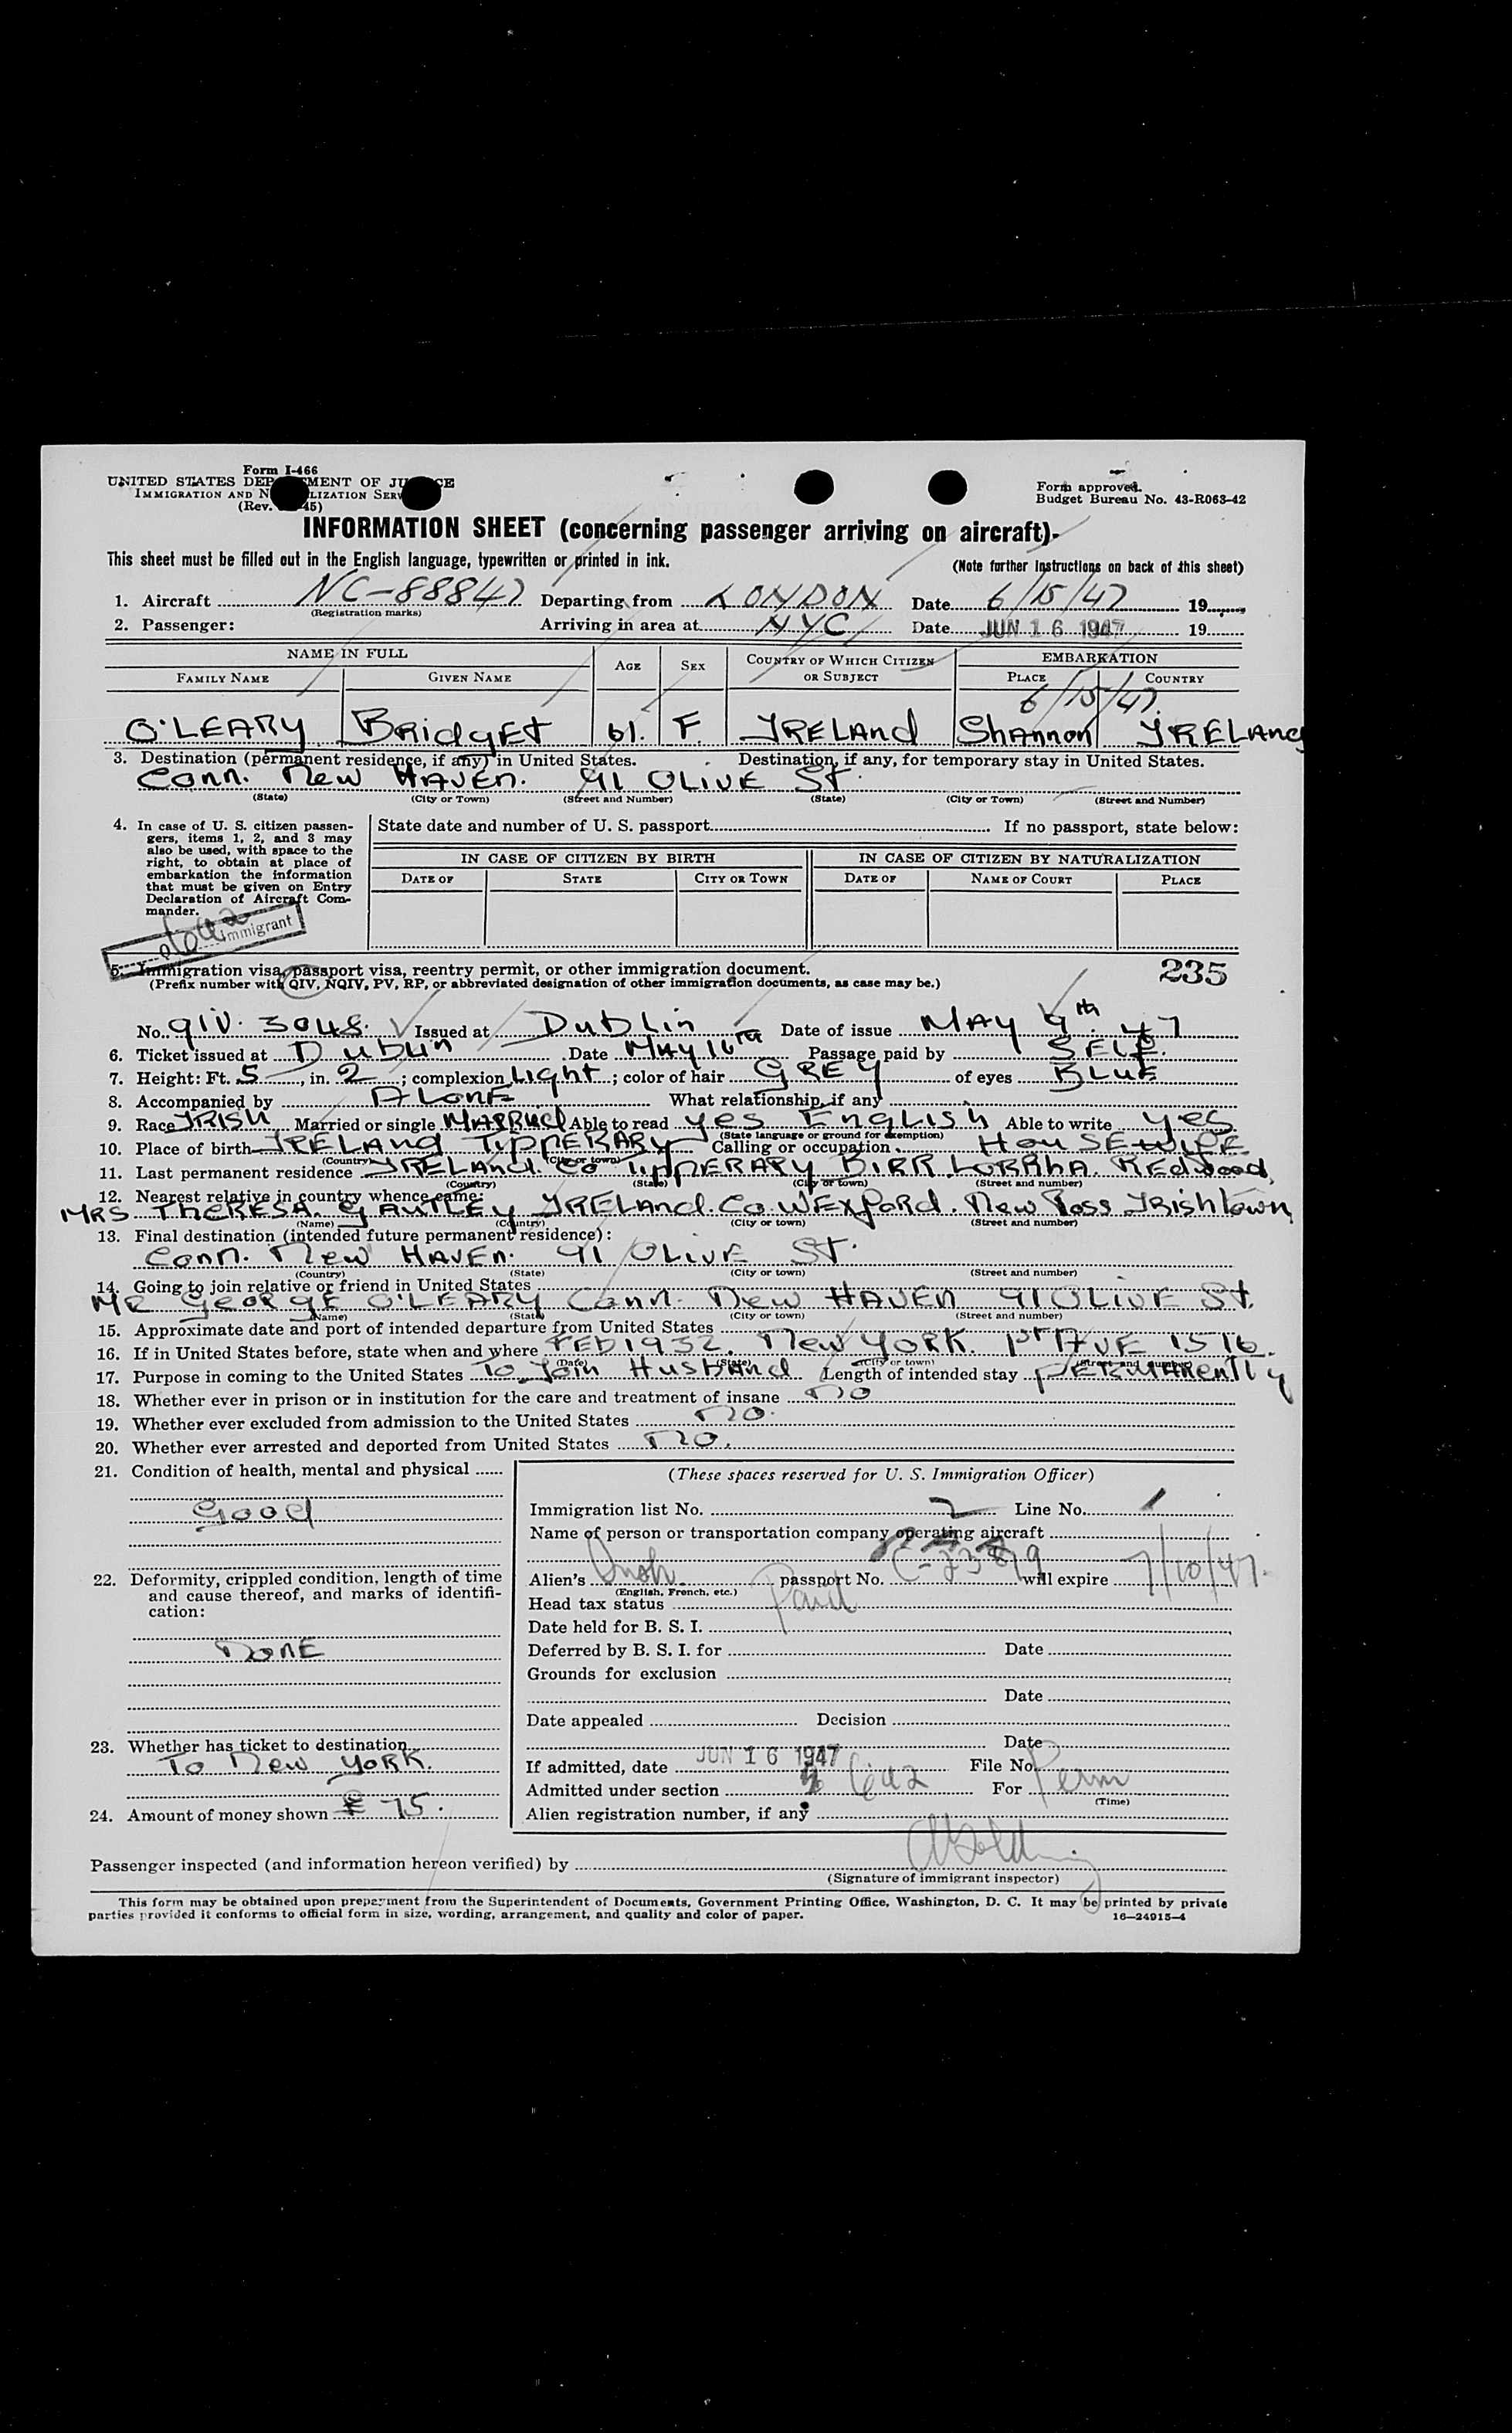 Form I-466
UNITED STATES DEP MENT OF JU CE
IMMIGRATION AND N LIZATION SERV
(Rev. 45)
Form approved.
Budget Bureau No. 43-R063-42
INFORMATION SHEET (concerning passenger arriving on aircraft)
This sheet must be filled out in the English language, typewritten or printed in ink.
(Note further instructions on back of this sheet)
1. Aircraft NC-88847 Departing from LONDON Date 6/15/47 19
(Registration marks)
2. Passenger: Arriving in area at NYC Date JUN 16 1947 19
NAME IN FULL AGE SEX COUNTRY OF WHICH CITIZEN OR SUBJECT EMBARKATION
FAMILY NAME GIVEN NAME PLACE COUNTRY
6/15/47.
O'LEARY BRIDGET 61. F. IRELAND SHANNON IRELAND
3. Destination (permanent residence, if any) in United States. Destination, if any, for temporary stay in United States.
CONN. NEW HAVEN. 91 OLIVE ST.
(State) (City or Town) (Street and Number) (State) (City or Town) (Street and Number)
4. In case of U. S. citizen passen-
gers, items 1, 2, and 3 may
also be used, with space to the
right, to obtain at place of
embarkation the information
that must be given on Entry
Declaration of Aircraft Com-
mander.
State date and number of U. S. passport If no passport, state below:
IN CASE OF CITIZEN BY BIRTH IN CASE OF CITIZEN BY NATURALIZATION
DATE OF STATE CITY OR TOWN DATE OF NAME OF COURT PLACE
Immigrant
5. Immigration visa, passport visa, reentry permit, or other immigration document. 235
(Prefix number with QIV, NQIV, PV, RP, or abbreviated designation of other immigration documents, as case may be.)
No. QIV. 3048. Issued at DUBLIN Date of issue MAY 9th 47
6. Ticket issued at DUBLIN Date MAY 16TH Passage paid by SELF.
7. Height: Ft. 5, in. 2; complexion LIGHT; color of hair GREY of eyes BLUE
8. Accompanied by ALONE What relationship, if any
9. Race IRISH Married or single MARRIED Able to read YES ENGLISH Able to write YES.
(State language or ground for exemption)
10. Place of birth IRELAND TIPPERARY Calling or occupation HOUSEWIFE
(Country) (City or town)
11. Last permanent residence IRELAND. CO TIPPERARY BIRR LORRHA. REDWOOD,
(Country) (State) (City or town) (Street and number)
12. Nearest relative in country whence came:
MRS THERESA GAUTLEY IRELAND. CO. WEXFORD. NEW ROSS IRISHTOWN
(Name) (Country) (City or town) (Street and number)
13. Final destination (intended future permanent residence):
CONN. NEW HAVEN. 91 OLIVE ST.
(Country) (State) (City or town) (Street and number)
14. Going to join relative or friend in United States
MR GEORGE O'LEARY CONN. NEW HAVEN 91 OLIVE ST.
(Name) (State) (City or town) (Street and number)
15. Approximate date and port of intended departure from United States
16. If in United States before, state when and where FEB 1932. NEW YORK. 1ST AVE 1516.
(Date) (State) (City or town) (Street and number)
17. Purpose in coming to the United States TO JOIN HUSBAND Length of intended stay PERMANENTLY
18. Whether ever in prison or in institution for the care and treatment of insane NO
19. Whether ever excluded from admission to the United States NO.
20. Whether ever arrested and deported from United States NO.
21. Condition of health, mental and physical
GOOD
22. Deformity, crippled condition, length of time
and cause thereof, and marks of identifi-
cation:
NONE
23. Whether has ticket to destination
TO NEW YORK.
24. Amount of money shown £ 75.
(These spaces reserved for U. S. Immigration Officer)
Immigration list No. 2 Line No. 1
Name of person or transportation company operating aircraft
Alien's Irish passport No. will expire 7/10/47.
(English, French, etc.)
Head tax status Paid
Date held for B. S. I.
Deferred by B. S. I. for Date
Grounds for exclusion
Date
Date appealed Decision
Date
If admitted, date JUN 16 1947 File No.
Admitted under section For Perm
(Time)
Alien registration number, if any
Passenger inspected (and information hereon verified) by
(Signature of immigrant inspector)
This form may be obtained upon prepayment from the Superintendent of Documents, Government Printing Office, Washington, D. C. It may be printed by private
parties provided it conforms to official form in size, wording, arrangement, and quality and color of paper. 16—24915-4